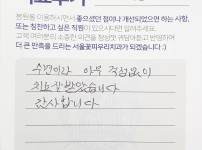 본원을 이용하시면서 좋으셨던 점이나 개선되었으면 하는 사항,
또는 칭찬하고 싶은 직원이 있으시다면 말해주세요.
고객 여러분의 소중한 의견을 귀담아듣고 반영하여
더 큰 만족을 드리는 서울꽃피우리치과가 되겠습니다 :)
수면이라 아무 걱정없이
치료잘받았습니다
감사합니다